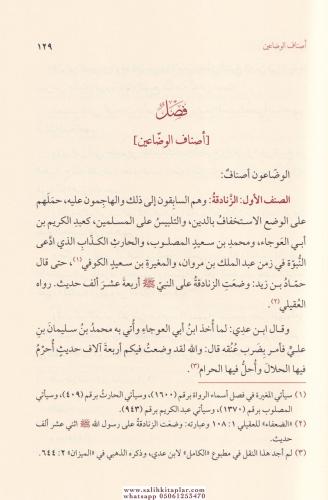 أصناف الوضاعين
١٢٩
فصل
[أصناف الوضّاعين]
الوضّاعون أصنافٌ:
الصنف الأول: الزَّنادقةُ: وهم السابقون إلى ذلك والهاجِمون عليه، حمَلَهم
على الوضع الاستخفافُ بالدين، والتلبيسُ على المسلمين، كعبدِ الكريم بن
أبي العوجاء، ومحمدِ بن سعيدٍ المصلوب، والحارثِ الكذّابِ الذي ادَّعى
النُّبوّة في زمن عبد الملك بن مروان، والمغيرةِ بن سعيدٍ الكوفي(١)، حتى قال
حمّادُ بن زيد: وضعَتِ الزنادقةُ على النبيِّ ﷺ أربعةَ عشرَ ألف حديث. رواه
العُقيلي(٢).
وقال ابن عدي: لما أُخذ ابنُ أبي العوجاء وأُتي به محمدُ بنُ سليمانَ بنِ
عليٍّ فأمر بضرب عُنُقه قال: والله لقد وضعتُ فيكم أربعةَ آلافِ حديثٍ أُحرِّمُ
فيها الحلالَ وأُحلُّ فيها الحرام(٣).
(١) سيأتي المغيرة في فصل أسماء الرواة برقم (١٦٠٠)، وسيأتي الحارثُ برقم (٤٠٩)، وسيأتي
المصلوب برقم (١٣٧٠)، وسيأتي عبد الكريم برقم (٩٤٣).
(٢) «الضعفاء» للعقيلي ١: ١٠٨ وعبارته: وضعَت الزنادقة على رسول الله ﷺ اثني عشر ألف
حديث.
(٣) لم أجد هذا النقل في مطبوع «الكامل» لابن عدي، وذكره الذهبي في «الميزان» ٢: ٦٤٤.
www.salihkitaplar.com
whatsapp 05061253470